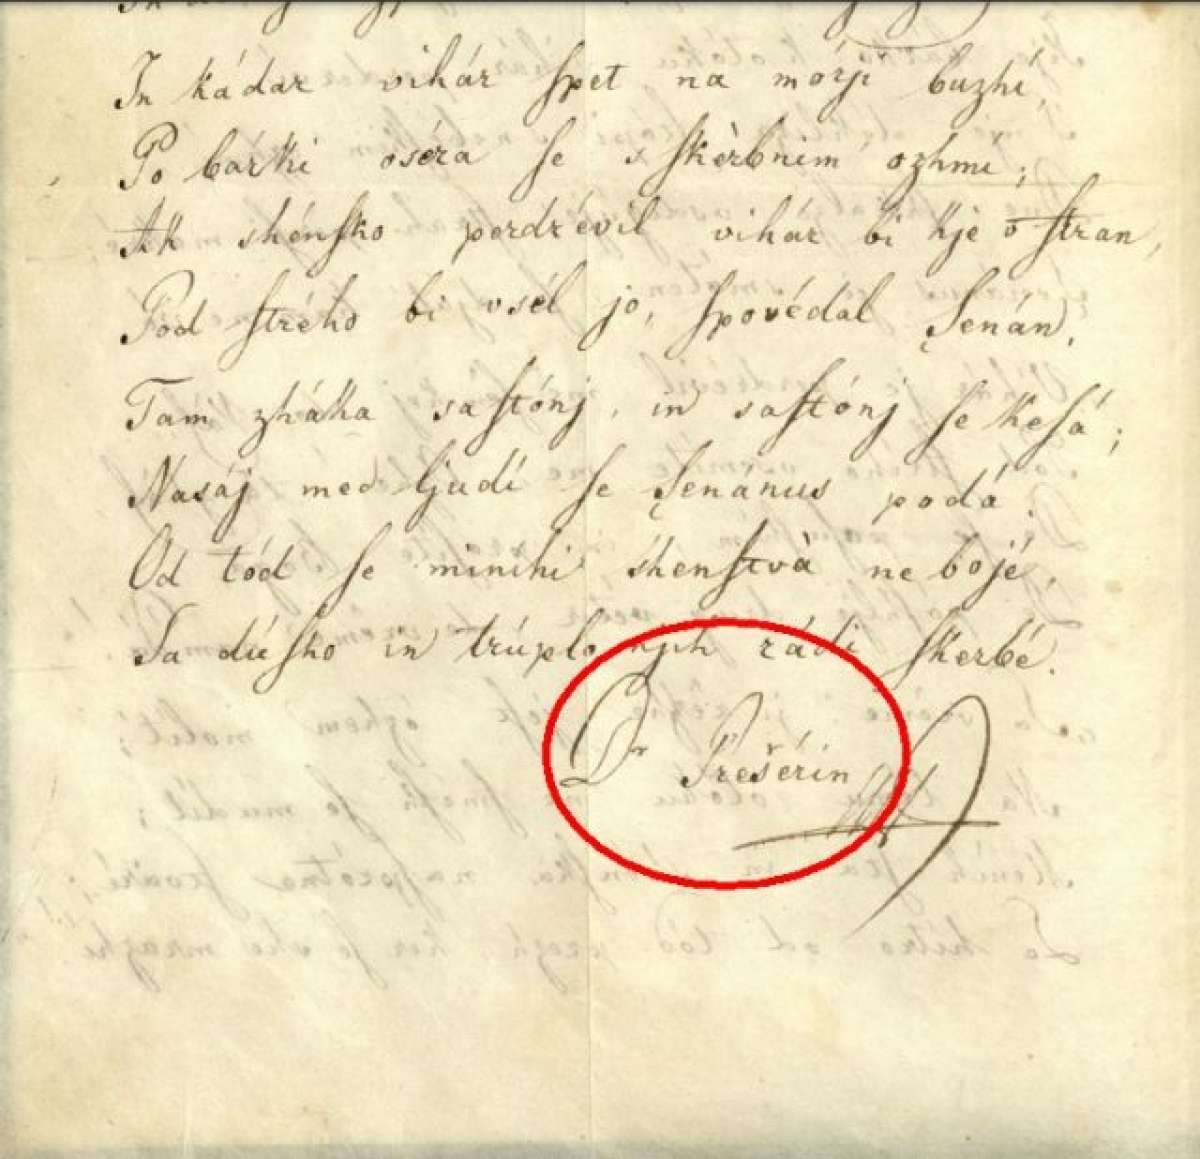 In kádar vihár ſpet na mórji buzhí,
Po bárki oséra ſe s ſkèrbnim ozhmí;
Ak shénſko perdrévil vihár bi kje ò ſtran,
Pod ſtrého bi vsél jo, ſpovédal Ṣenán.
Tam zháka saſtónj, in saſtónj ſe keſá;
Nasáj med ljudí ſe Ṣenanus podá.
Od tód ſe minihi shenſtvà ne bojé,
Sa dúſho in trúplo njih rádi ſkerbé.
Dr Přešérin